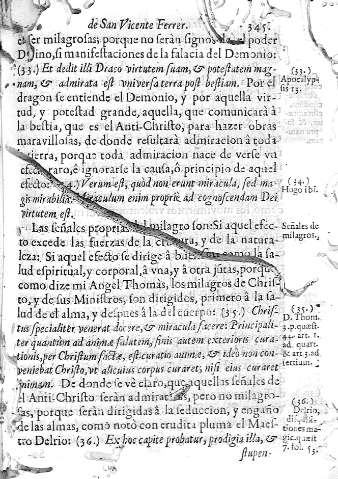 de San Vicente Ferrer. 345.
ser milagrosas; porque no seràn signos poder
Divino, si manifestaciones de la falacia del Demonio:
(33.) Et dedit illi Draco virtutem suam, & potestatem mag-
nam, & admirata est vniversa terra post bestiam. Por el
dragon se entiende el Demonio, y por aquella vir-
tud, y potestad grande, aquella, que comunicarà à
la bestia, que es el Anti-Christo, para hazer obras
maravillosas, de donde resultarà admiracion à toda
tierra, porque toda admiracion nace de verse va
efecto raro, è ignorarse la causa, ò principio de aquel
efecto: (34.) Verum est, quòd non erunt miracula, sed ma-
gis mirabilia: miraculum enim propriè ad cognoscendam Dei
virtutem est.
Las señales proprias del milagro son: Si aquel efec-
to excede las fuerzas de la criatura, y de la natura-
leza: Si aquel efecto se dirige à como la sa-
lud espiritual, y corporal, à vna, y à otra jũtas, porque
como dize mi Angel Thomàs, los milagros de Chris-
to, y de sus Ministros, son dirigidos, primero à la sa-
lud de el alma, y despues à la del cuerpo: (35.) Chris-
tus specialiter venerat docere, & miracula facere: Principali-
ter quantum ad animæ salutem, sinis autem exterioris cura-
tionis, per Christum factæ, est curatio animæ, & ideò non con-
veniebat Christo, vt alicuius corpus curaret, nisi eius curaret
animam. De donde se vè claro, que aquellas señales de
el Anti-Christo seràn admirables, pero no milagro-
sas, porque seràn dirigidas à la seduccion, y engaño
de las almas, como notò con erudita pluma el Maes-
tro Delrio: (36.) Ex hoc capite probatur, prodigia illa, &
stupen-
(33.)
Apocalyp-
sis 13.
(34.)
Hugo ibi.
Señales de
milagros.
(35.)
D. Thom.
3. p. quæst.
44. art. 3.
ad. quart.
& art 3. ad
tertium.
(36.)
Delrio,
magic. quæst.
7. fol. 53.